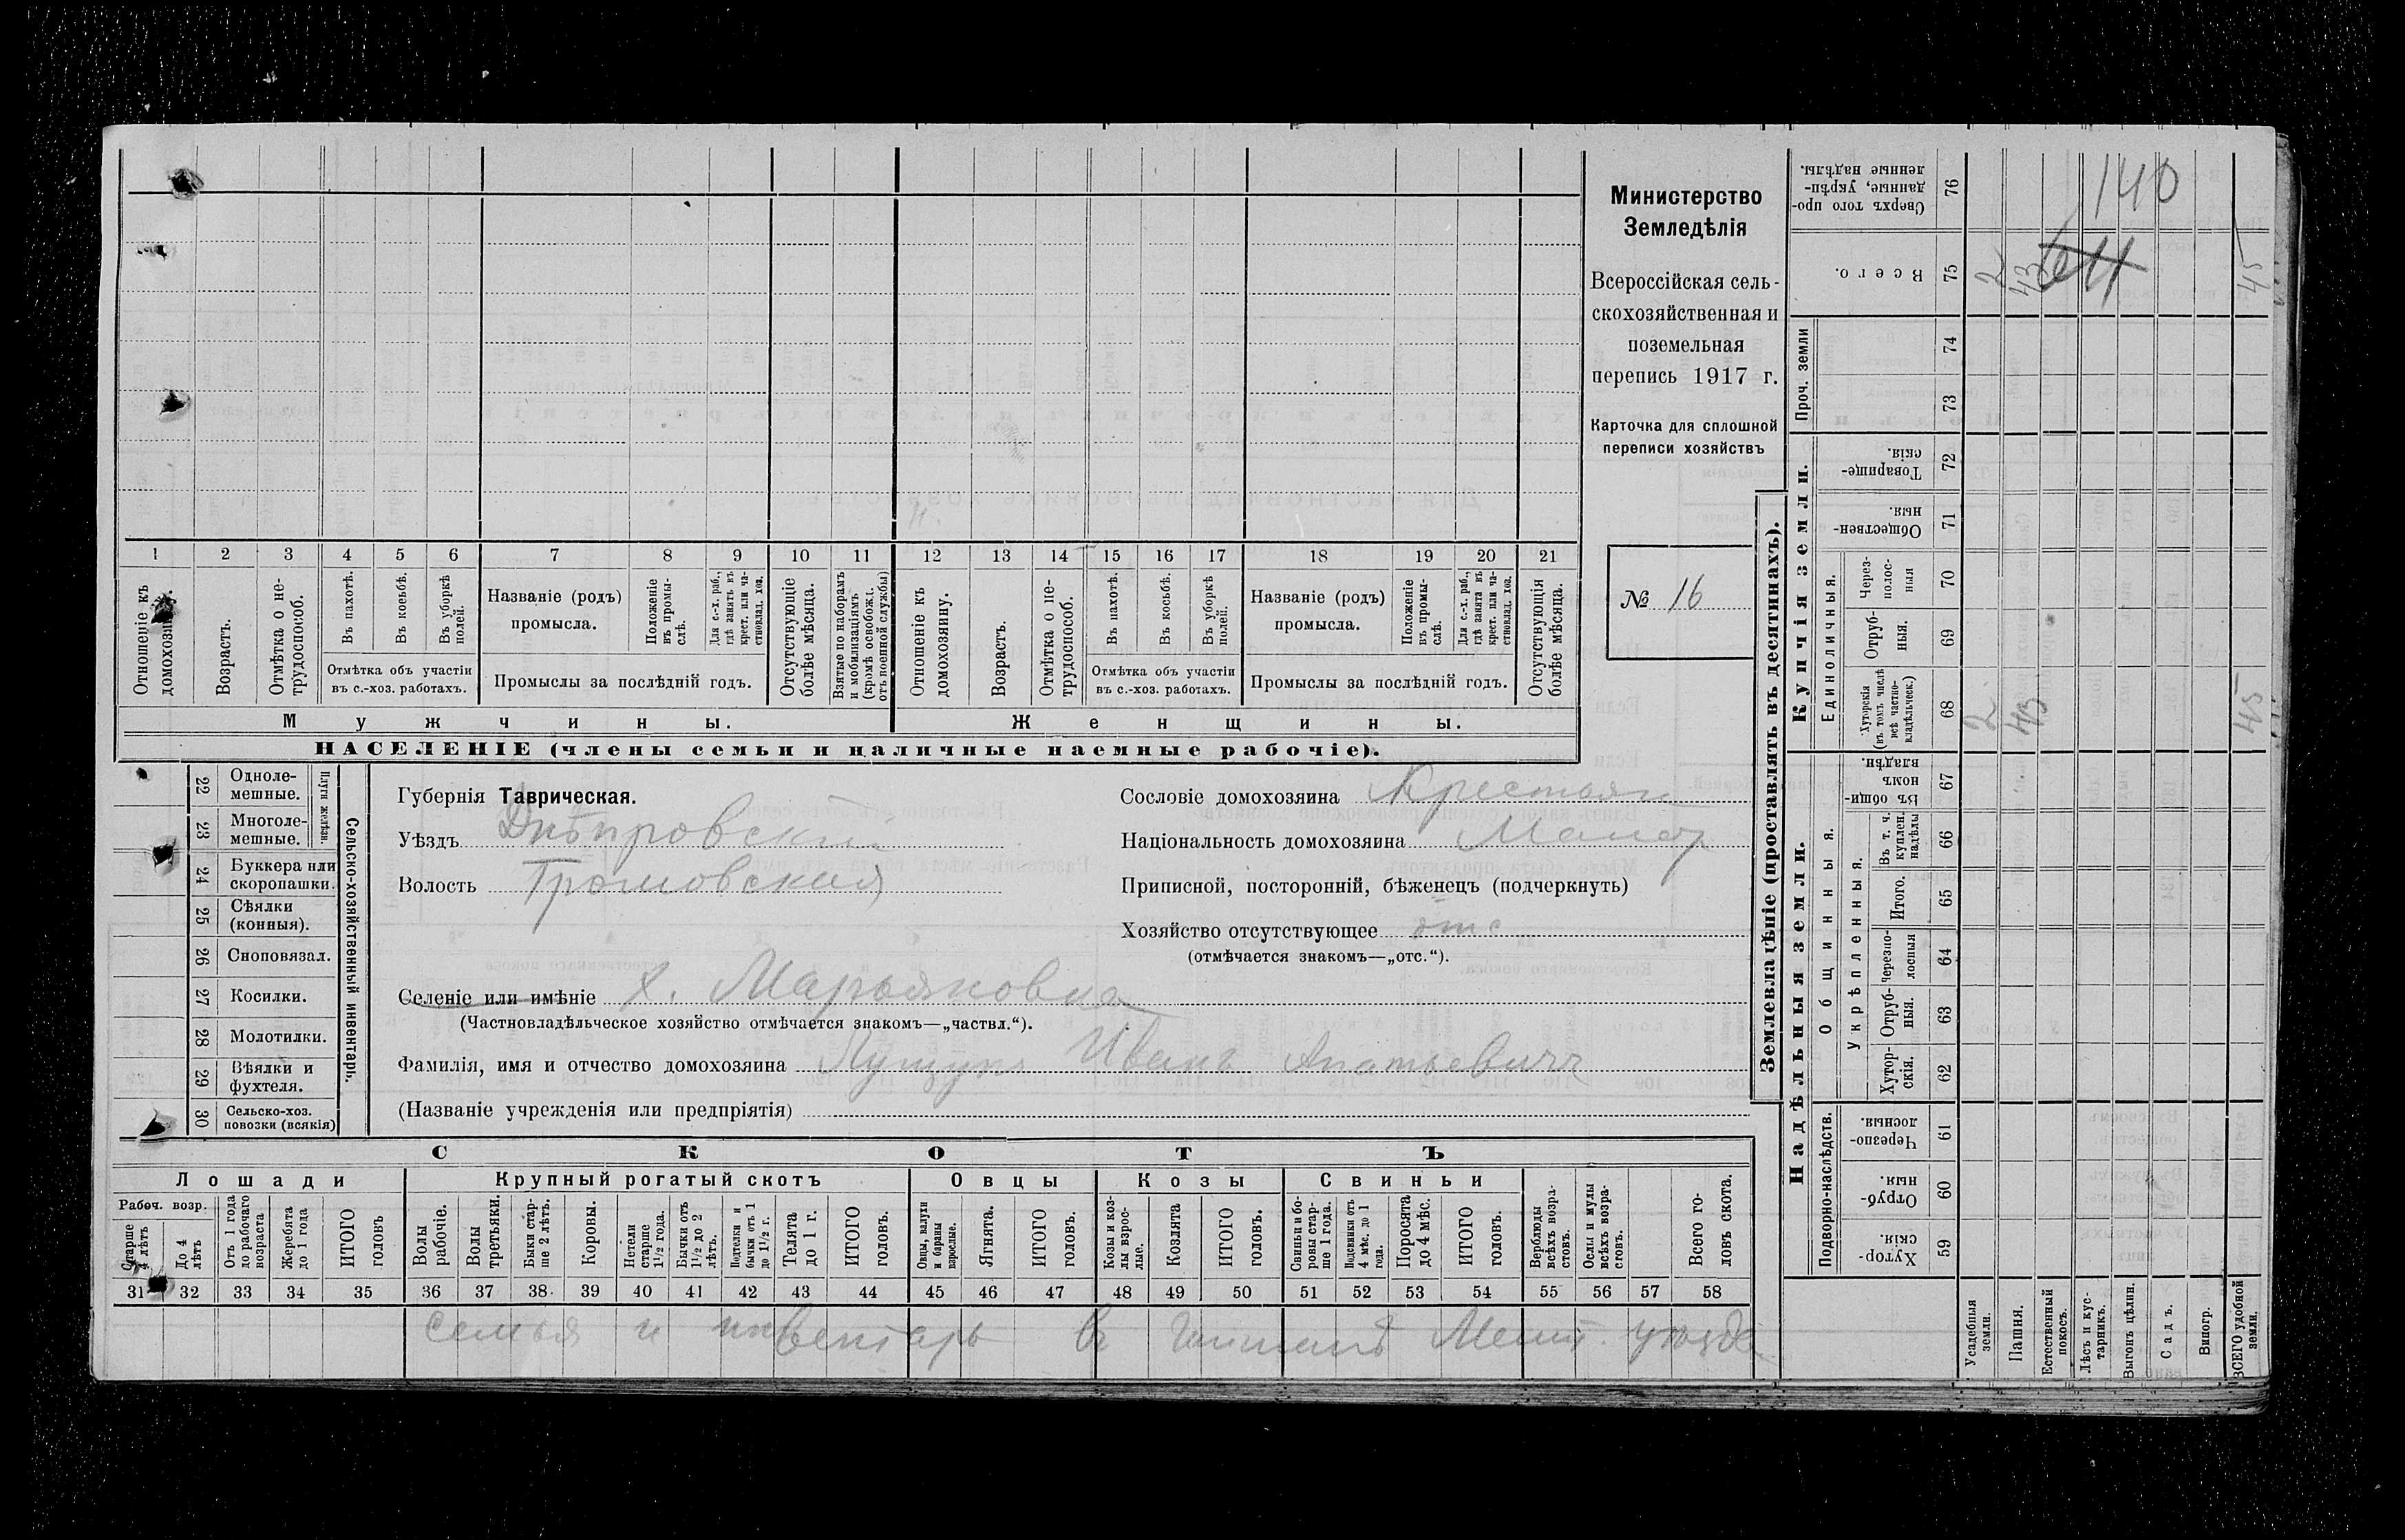 Министерство
Земледѣлія
Всероссійская сель-
скохозяйственная и
поземельная
перепись 1917 г.
Карточка для сплошной
переписи хозяйствъ
№ 16
1 2 3 4 5 6 7 8 9 10 11 12 13 14 15 16 17 18 19 20 21
Отношеніе къ домохозяину.
Возрастъ.
Отмѣтка о не-
трудоспособ.
Въ пахотѣ.
Въ косьбѣ.
Въ уборкѣ
полей.
Отмѣтка объ участіи
въ с.-хоз. работахъ.
Названіе (родъ)
промысла.
Положеніе
въ промы-
слѣ.
Для с.-х. раб.,
гдѣ занятъ въ
крест. или ча-
стновлад. хоз.
Промыслы за послѣдній годъ.
Отсутствующіе
болѣе мѣсяца.
Взятые по наборамъ
и мобилизаціямъ
(кромѣ освобожд.
отъ военной службы)
Отношеніе къ
домохозяину.
Возрастъ.
Отмѣтка о не-
трудоспособ.
Въ пахотѣ.
Въ косьбѣ.
Въ уборкѣ
полей.
Отмѣтка объ участіи
въ с.-хоз. работахъ.
Названіе (родъ)
промысла.
Положеніе
въ промы-
слѣ.
Для с.-х. раб.,
гдѣ занята въ
крест. или ча-
стновлад. хоз.
Промыслы за послѣдній годъ.
Отсутствующія
болѣе мѣсяца.
Мужчины.
Женщины.
НАСЕЛЕНІЕ (члены семьи и наличные наемные рабочіе).
22 Одноле-
мешные.
23 Многоле-
мешные.
Плуги желѣзн.
24 Буккера или
скоропашки.
25 Сѣялки
(конныя).
26 Сноповязал.
27 Косилки.
28 Молотилки.
29 Вѣялки и
фухтеля.
30 Сельско-хоз.
повозки (всякія)
Сельско-хозяйственный инвентарь.
Губернія Таврическая.
Уѣздъ Днѣпровскій
Волость Громовская
Сословіе домохозяина Крестьян
Національность домохозяина Малор
Приписной, посторонній, бѣженецъ (подчеркнуть)
Хозяйство отсутствующее отс
(отмѣчается знакомъ—„отс.“).
Селеніе или имѣніе х. Марьяновка
(Частновладѣльческое хозяйство отмѣчается знакомъ—„частвл.“).
Фамилія, имя и отчество домохозяина Иванъ
(Названіе учрежденія или предпріятія)
СКОТЪ
Лошади
Крупный рогатый скотъ
Овцы
Козы
Свиньи
Рабоч. возр.
Старше
4 лѣтъ
До 4
лѣтъ
Отъ 1 года
до рабочаго
возраста
Жеребята
до 1 года
ИТОГО
головъ
Волы
рабочіе.
Волы
третьяки.
Быки стар-
ше 2 лѣтъ.
Коровы.
Нетели
старше
1 1/2 года.
Бычки отъ
1 1/2 до 2
лѣтъ.
Подтелки и
бычки отъ 1
до 1 1/2 г.
Телята
до 1 г.
ИТОГО
головъ.
Овцы, валухи
и бараны
взрослые.
Ягнята.
ИТОГО
головъ.
Козы и коз-
лы взрос-
лые.
Козлята
ИТОГО
головъ.
Свиньи и бо-
ровы стар-
ше 1 года.
Подсвинки отъ
4 мѣс. до 1
года.
Поросята
до 4 мѣс.
ИТОГО
головъ.
Верблюды
всѣхъ возра-
стовъ.
Ослы и мулы
всѣхъ возра-
стовъ.
Всего го-
ловъ скота.
31 32 33 34 35 36 37 38 39 40 41 42 43 44 45 46 47 48 49 50 51 52 53 54 55 56 57 58
семья и инвентарь в Мелит. уѣзде
Землевладѣніе (проставлять въ десятинахъ).
Купчія земли.
Надѣльныя земли.
Сверхъ того про-
данные, укрѣп-
ленные надѣлы.
76
140
Всего.
75
2 43 45
Проч. земли
74
73
Товарище-
скія.
72
Обществен-
ныя.
71
Единоличныя.
Через-
полос-
ныя
70
Отруб-
ныя.
69
Хуторскія
(въ томъ числѣ
всѣ частно-
владѣльческ.)
68
2 43 45
Общинныя.
Въ общин-
номъ
владѣн.
67
Укрѣпленныя.
Въ т. ч.
куплен.
надѣлы
66
Итого.
65
Черезпо-
лосныя
64
Отруб-
ныя.
63
Хутор-
скія.
62
Подворно-наслѣдств.
Черезпо-
лосныя.
61
Отруб-
ныя.
60
Хутор-
скія.
59
Усадебныя
земли.
Пашня.
Естественный
покосъ.
Лѣсъ и кус-
тарникъ.
Выгонъ цѣлин.
Садъ.
Виногр.
ВСЕГО удобной
земли.